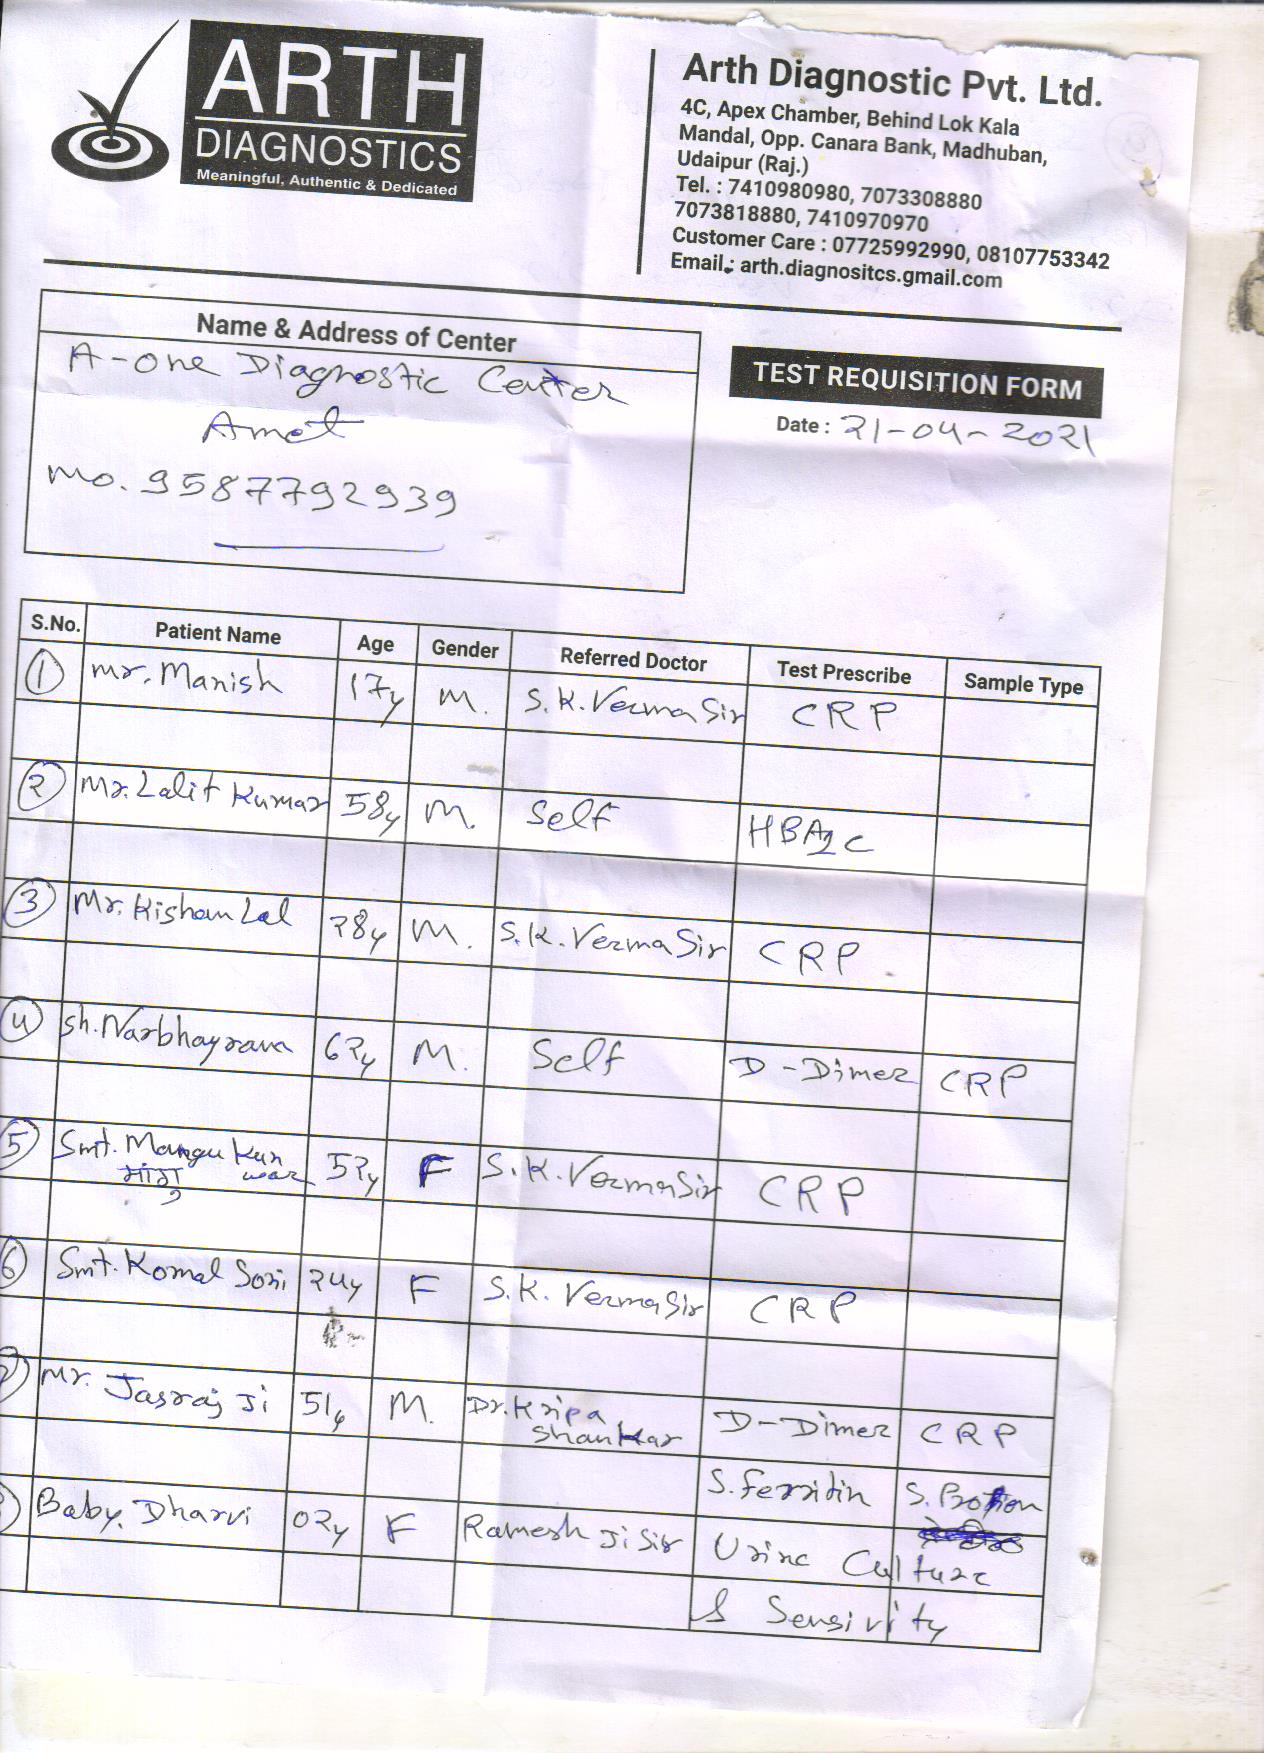 ARTH
DIAGNOSTICS
Meaningful, Authentic & Dedicated
Arth Diagnostic Pvt. Ltd.
4C, Apex Chamber, Behind Lok Kala
Mandal, Opp. Canara Bank, Madhuban,
Udaipur (Raj.)
Tel. : 7410980980, 7073308880
7073818880, 7410970970
Customer Care : 07725992990, 08107753342
Email.: arth.diagnositcs.gmail.com
Name & Address of Center
A-One Diagnostic Center
Amet
Mo. 9587792939
TEST REQUISITION FORM
Date : 21-04-2021
S.No. Patient Name Age Gender Referred Doctor Test Prescribe Sample Type
1 mr. Manish 17y M. S.K. Verma Sir CRP
2 Mr. Lalit Kumar 58y M. Self HBA1C
3 Mr. Kishan Lal 28y M. S.K. Verma Sir CRP
4 Sh. Narbhayram 62y M. Self D-Dimer CRP
5 Smt. Mangu Kun 52y F S.K. Verma Sir CRP
मांगु war
6 Smt. Komal Soni 24y F S.K. Verma Sir CRP
7 Mr. Jasraj Ji 51y M. Dr. Kripa D-Dimer CRP
Shankar
S. Ferritin S.
Baby. Dharvi 02y F Ramesh Ji Sir Urine Culture
& Sensivity